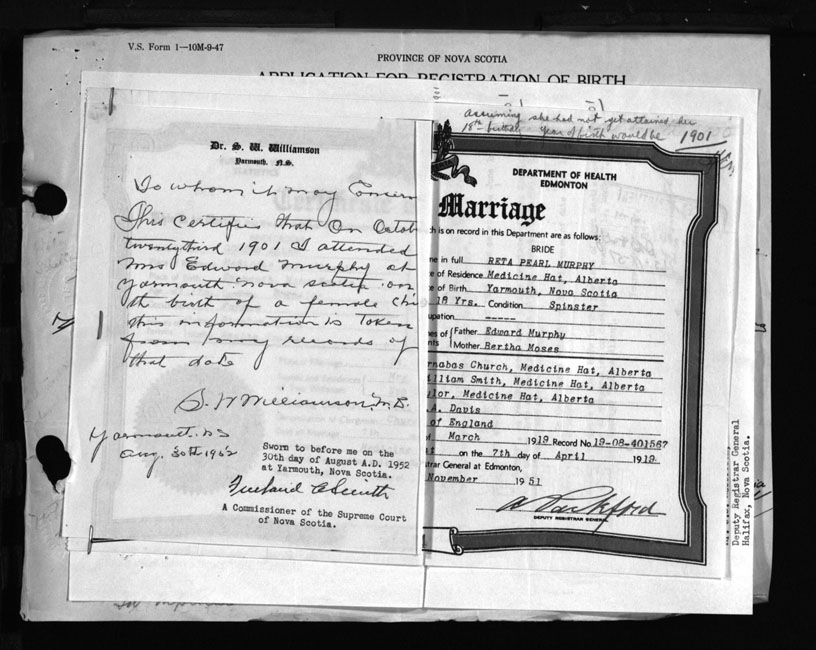 V.S. Form 1—10M-9-47
PROVINCE OF NOVA SCOTIA
APPLICATION FOR REGISTRATION OF BIRTH
assuming she had not yet attained her
18th birthday year of birth would be 1901
Dr. S. W. Williamson
Yarmouth, N.S.
To whom it may Concern
This Certifies that On Octob
twentythird 1901 I attended
Mrs Edward Murphy at
Yarmouth Nova Scotia on
the birth of a female Chi
this information is Taken
from my records of
that date
S. W Williamson, M.D.
Yarmouth. NS
Aug. 30th 1952
Sworn to before me on the
30th day of August A.D. 1952
at Yarmouth, Nova Scotia.
A Commissioner of the Supreme Court
of Nova Scotia.
DEPARTMENT OF HEALTH
EDMONTON
Marriage
ch is on record in this Department are as follows:
BRIDE
me in full RETA PEARL MURPHY
e of Residence Medicine Hat, Alberta
e of Birth Yarmouth, Nova Scotia
18 Yrs. Condition Spinster
upation -----
es of Father Edward Murphy
nts Mother Bertha Moses
rnabas Church, Medicine Hat, Alberta
illiam Smith, Medicine Hat, Alberta
ylor, Medicine Hat, Alberta
.A. Davis
of England
of March 1919 Record No. 19-08-401567
on the 7th day of April 1919
strar General at Edmonton,
November 1951
DEPUTY REGISTRAR GENERAL
Deputy Registrar General
Halifax, Nova Scotia.